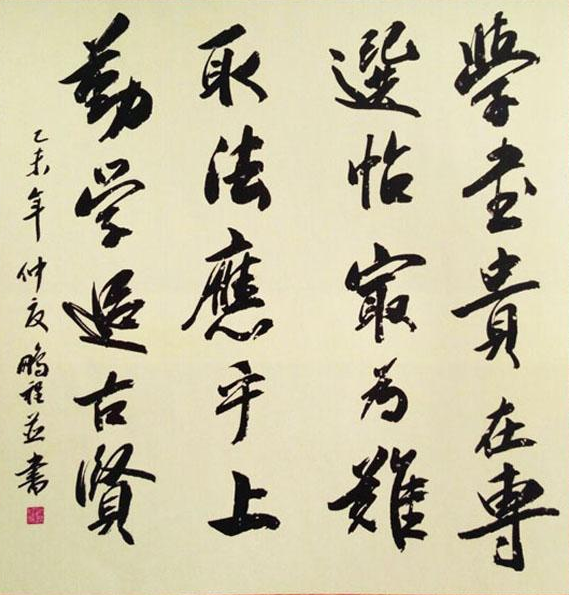 學書貴在專
選帖最為難
取法應乎上
勤学追古賢
乙未年仲夏鵬程並書